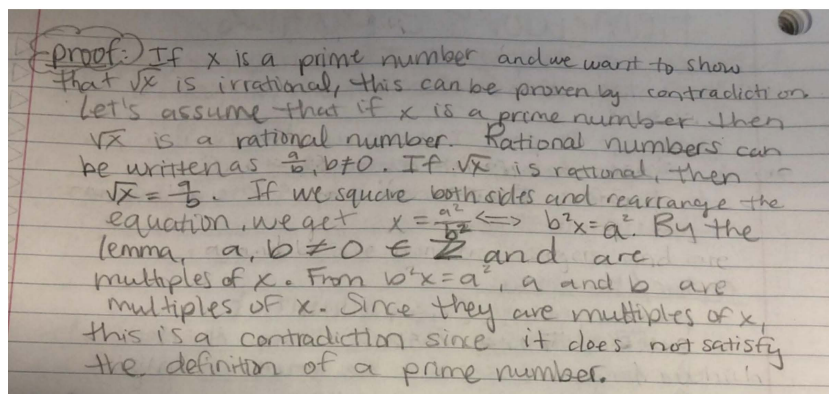 Proof: If x is a prime number and we want to show
that √x is irrational, this can be proven by contradiction.
Let's assume that if x is a prime number then
√x is a rational number. Rational numbers can
be written as a/b, b≠0. If √x is rational, then
√x = a/b. If we square both sides and rearrange the
equation, we get x = a²/b² ⟺ b²x=a². By the
lemma, a, b ≠ 0 ∈ ℤ and are
multiples of x. From b²x=a², a and b are
multiples of x. Since they are multiples of x,
this is a contradiction since it does not satisfy
the definition of a prime number.